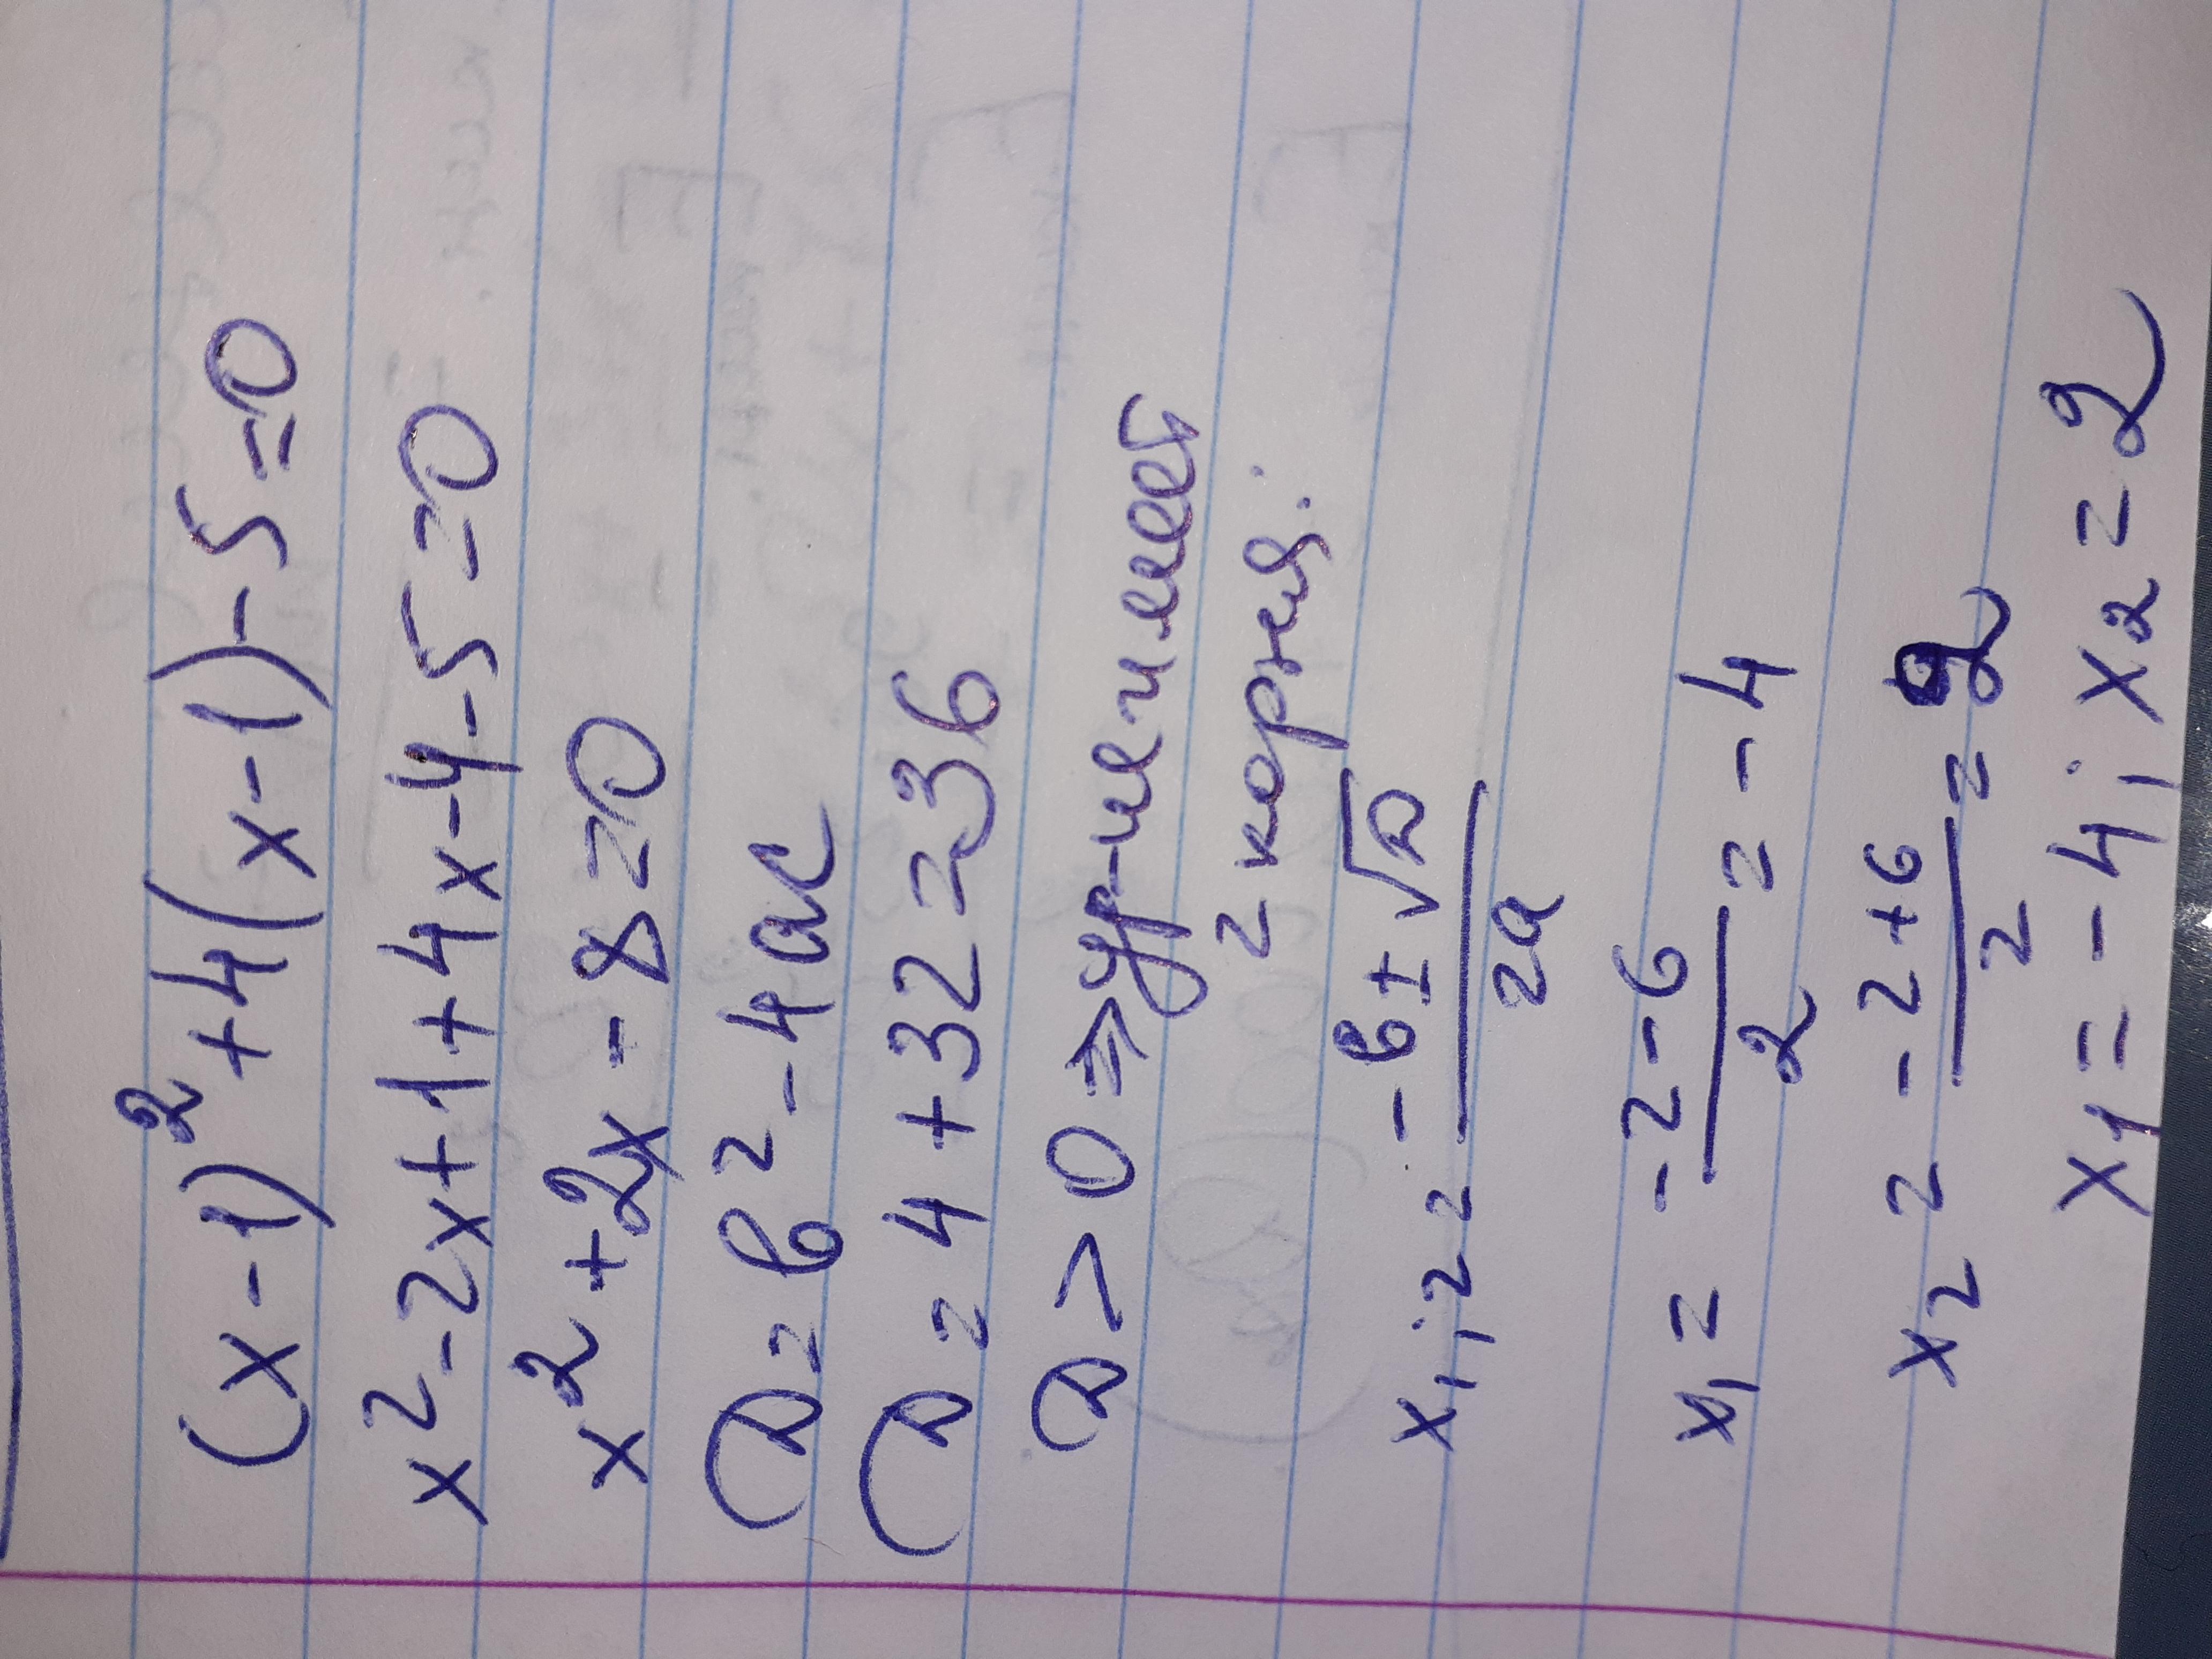 (x-1)²+4(x-1)-5=0
x²-2x+1+4x-4-5=0
x²+2x-8=0
D=b²-4ac
D=4+32=36
D>0⇒ур-ие имеет
2 корня:
x₁;₂=(-b±√D)/2a
x₁=(-2-6)/2=-4
x₂=(-2+6)/2=2
x₁=-4; x₂=2